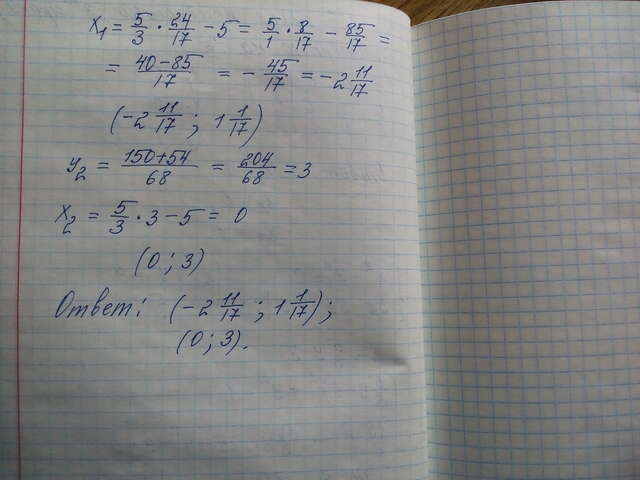 x₁ = 5/3 · 24/17 − 5 = 5/1 · 8/17 − 85/17 =
= (40−85)/17 = − 45/17 = −2 11/17
(−2 11/17 ; 1 1/17)
y₂ = (150+54)/68 = 204/68 = 3
x₂ = 5/3 · 3 − 5 = 0
(0 ; 3)
Ответ: (−2 11/17 ; 1 1/17);
(0 ; 3).